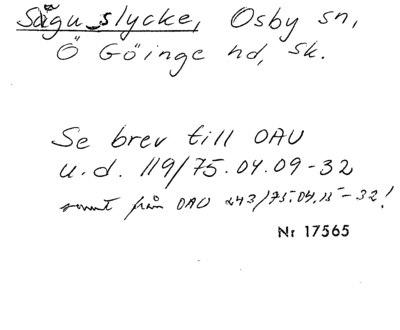 Sågu_slycke, Osby sn,
Ö Göinge hd, Sk.
Se brev till OAU
u.d. 119/75.04.09-32
samt från OAU 243/75.04.15-32!
Nr 17565